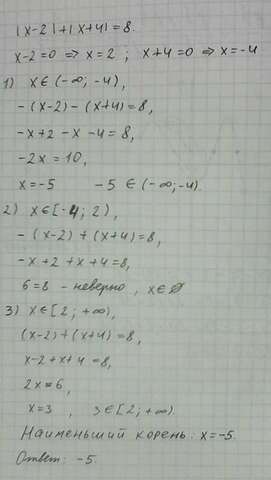 |x-2|+|x+4|=8.
x-2=0 ⇒ x=2 ; x+4=0 ⇒ x=-4
1) x∈(-∞;-4),
-(x-2)-(x+4)=8,
-x+2-x-4=8,
-2x=10,
x=-5 -5 ∈(-∞;-4).
2) x∈[-4; 2),
-(x-2)+(x+4)=8,
-x+2+x+4=8,
6=8 - неверно, x∈Ø
3) x∈[2;+∞),
(x-2)+(x+4)=8,
x-2+x+4=8,
2x=6,
x=3, 3∈[2;+∞).
Наименьший корень: x=-5.
Ответ: -5.